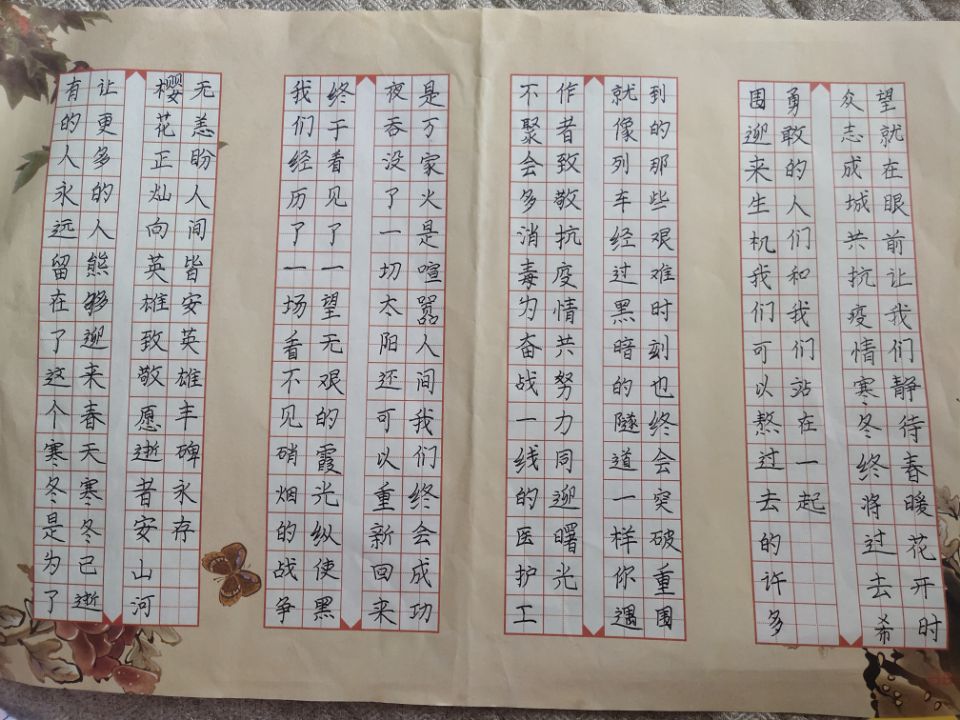 有的人永远留在了这个寒冬是为了
让更多的人熊够迎来春天寒冬已逝
樱花正灿向英雄致敬愿逝者安山河
无恙盼人间皆安英雄丰碑永存
我们经历了一场看不见硝烟的战争
终于看见了一望无艰的霞光纵使黑
夜吞没了一切太阳还可以重新回来
是万家火是喧嚣人间我们终会成功
不聚会多消毒为奋战一线的医护工
作者致敬抗疫情共努力同迎曙光
就像列车经过黑暗的隧道一样你遇
到的那些艰难时刻也终会突破重围
围迎来生机我们可以熬过去的许多
勇敢的人们和我们站在一起
众志成城共抗疫情寒冬终将过去希
望就在眼前让我们静待春暖花开时